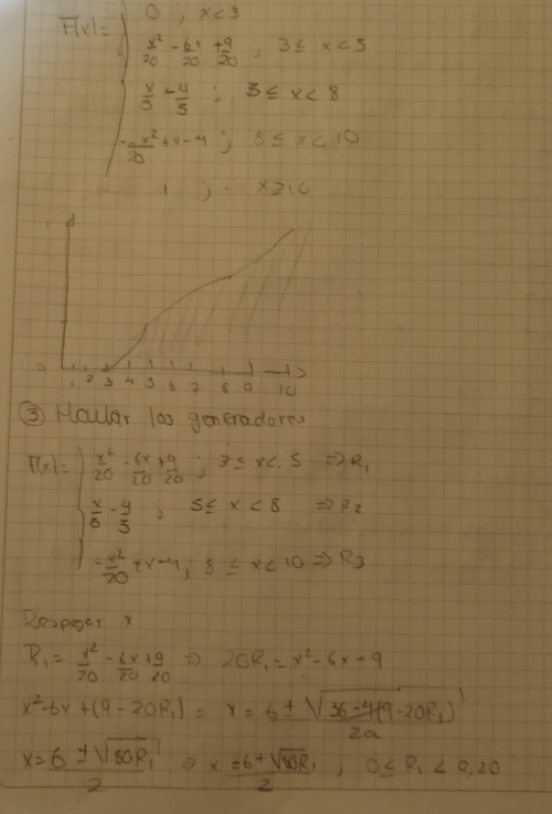 F(x)= 0 ; x<3
x²/20 - 6x/20 + 9/20 ; 3 ≤ x < 5
x/5 - 4/5 ; 3 ≤ x < 8
-x²/20 + x - 4 ; 8 ≤ x < 10
1 ; x ≥ 10
1 2 3 4 5 6 7 8 9 10
③ Hallar los generadores
F(x)= x²/20 - 6x/20 + 9/20 ; 3 ≤ x < 5 ⇒ R₁
x/5 - 4/5 ; 5 ≤ x < 8 ⇒ R₂
-x²/20 + x - 4 ; 8 ≤ x < 10 ⇒ R₃
Despejar x
R₁ = x²/20 - 6x/20 + 9/20 ⇒ 20R₁ = x² - 6x + 9
x² - 6x + (9 - 20R₁) = x = 6 ± √(36 - 4(9 - 20R₁)) / 2a
x = 6 ± √80R₁ / 2 ⇒ x = 6 + √80R₁ / 2 , 0 ≤ R₁ < 0,20